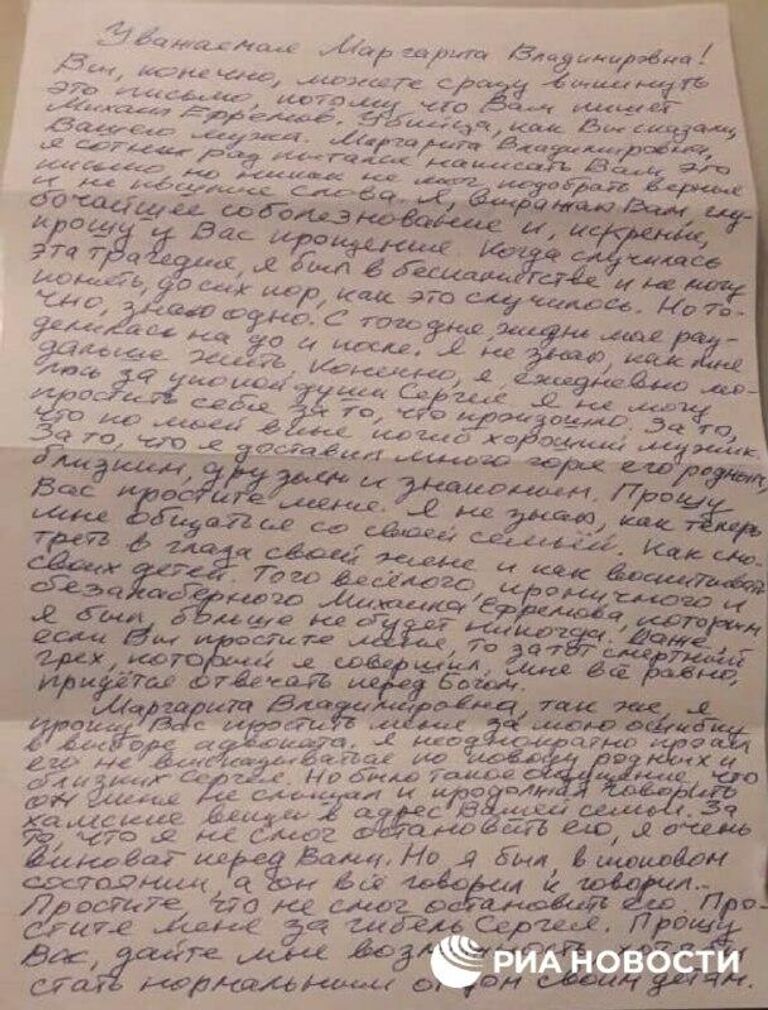 Уважаемая Маргарита Владимировна!
Вы, конечно, можете сразу выкинуть
это письмо, потому что Вам пишет
Михаил Ефремов. Убийца, как Вы сказали,
Вашего мужа. Маргарита Владимировна,
я сотни раз пытался написать Вам это
письмо но никак не мог подобрать верные
и не пошлые слова. Я, выражаю Вам, глу-
бочайшее соболезнование и, искренне,
прошу у Вас прощения. Когда случилась
эта трагедия, я был в беспамятстве и не могу
понять, до сих пор, как это случилось. Но то-
чно, знаю одно. С того дня, жизнь моя раз-
делилась на до и после. Я не знаю, как мне
дальше жить. Конечно, я, ежедневно мо-
люсь за упокой души Сергея. Я не могу
простить себя за то, что произошло. За то,
что по моей вине погиб хороший мужик.
За то, что я доставил много горя его родным,
близким, друзьям и знакомым. Прошу
Вас простите меня. Я не знаю, как теперь
мне общаться со своей семьёй. Как смо-
треть в глаза своей жене и как воспитывать
своих детей. Того весёлого, ироничного и
безалаберного Михаила Ефремова, которым
я был, больше не будет никогда. Даже,
если Вы простите меня, то за тот смертный
грех, который я совершил, мне всё равно,
придётся отвечать перед Богом.
Маргарита Владимировна, так же, я
прошу Вас простить меня за мою ошибку
в выборе адвоката. Я неоднократно просил
его не высказываться по поводу родных и
близких Сергея. Но было такое ощущение, что
он меня не слышал и продолжал говорить
хамские вещи в адрес Вашей семьи. За
то, что я не смог остановить его, я очень
виноват перед Вами. Но я был, в шоковом
состоянии, а он всё говорил и говорил..
Простите, что не смог остановить его. Про-
стите меня за гибель Сергея. Прошу
Вас, дайте мне
стать нормальным отцом своим детям.
РИА НОВОСТИ